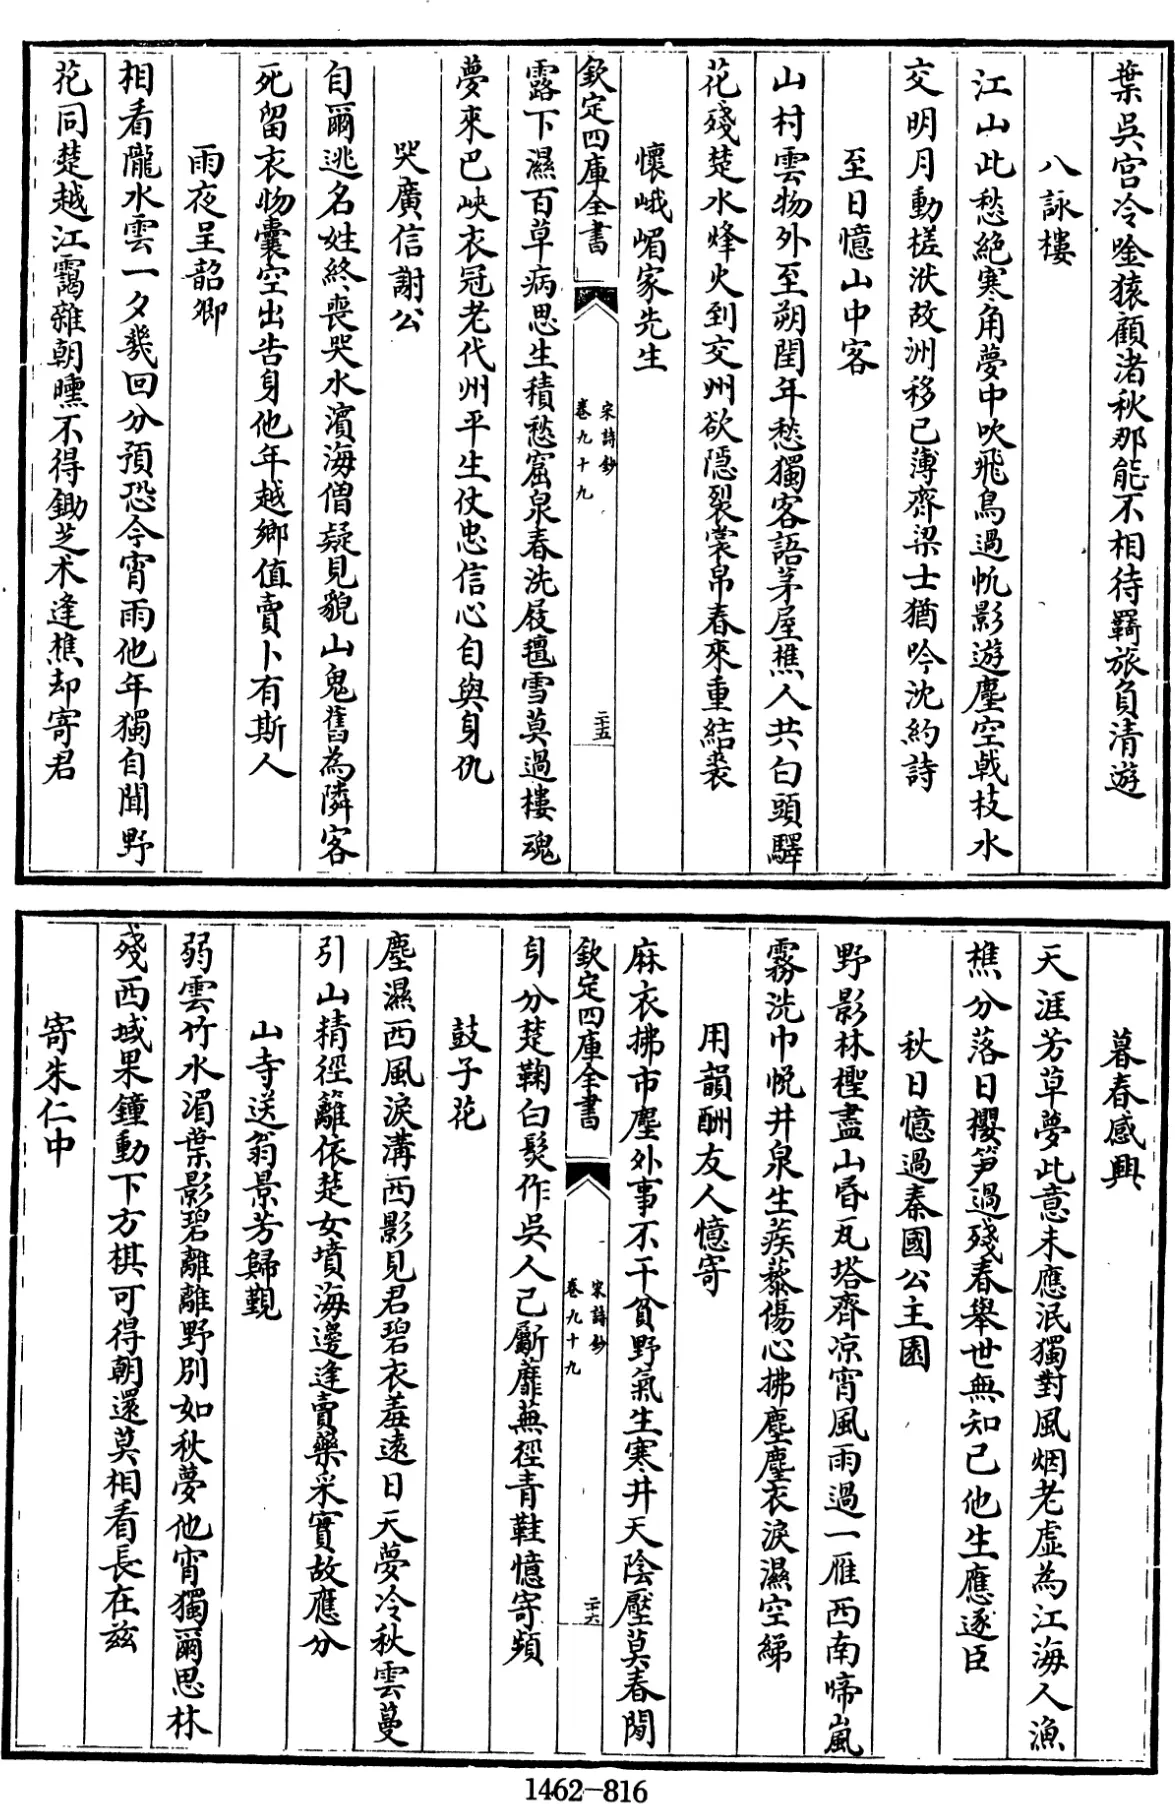 葉吳宮冷唫猿顧渚秋那能不相待羇旅負清遊
八詠樓
江山此愁絶寒角夢中吹飛鳥過帆影遊塵空戟枝水
交明月動槎洑故洲移已薄齊梁士猶吟沈約詩
至日憶山中客
山村雲物外至朔閏年愁獨客語茅屋樵人共白頭驛
花殘楚水烽火到交州欲隱裂裳帛春來重結裘
懷峨嵋家先生
欽定四庫全書
宋詩鈔
卷九十九
二十五
露下濕百草病思生積愁窟泉春洗屐氊雪莫過樓魂
夢來巴峽衣冠老代州平生仗忠信心自與身仇
哭廣信謝公
自爾逃名姓終喪哭水濱海僧疑見貌山鬼舊為隣客
死留衣物囊空出告身他年越鄉值賣卜有斯人
雨夜呈韶卿
相看隴水雲一夕幾回分預恐今宵雨他年獨自聞野
花同楚越江靄雜朝曛不得鋤芝术逢樵却寄君
暮春感興
天涯芳草夢此意未應泯獨對風烟老虛為江海人漁
樵分落日櫻笋過殘春舉世無知己他生應逐臣
秋日憶過秦國公主園
野影林檉盡山昏瓦塔齊凉宵風雨過一雁西南啼嵐
霧洗巾帨井泉生蒺藜傷心拂塵塵衣淚濕空綈
用韻酬友人憶寄
麻衣拂市塵外事不干貧野氣生寒井天陰壓莫春閒
欽定四庫全書
宋詩鈔
卷九十九
二十六
身分楚鞠白髮作吳人己斸蘼蕪徑青鞋憶寄頻
鼓子花
塵濕西風淚溝西影見君碧衣羞遠日天夢冷秋雲蔓
引山精徑籬依楚女墳海邊逢賣藥采實故應分
山寺送翁景芳歸覲
弱雲竹水湄葉影碧離離野別如秋夢他宵獨爾思林
殘西域果鐘動下方棋可得朝還莫相看長在兹
寄朱仁中
1462—816